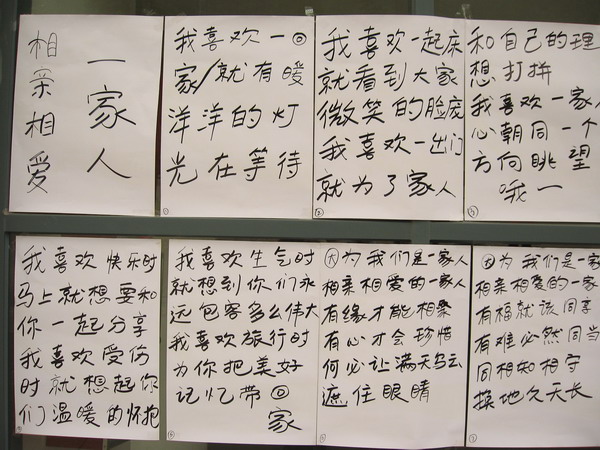 相亲相爱
一家人
我喜欢一◎
家/就有暖
洋洋的灯
光在等待
我喜欢一起床
就看到大家
微笑的脸庞
我喜欢一出门
就为了家人
和自己的理
想打拼
我喜欢一家人
心朝同一个
方向眺望
哦一
我喜欢快乐时
马上就想要和
你一起分享
我喜欢受伤
时就想起你
们温暖的怀抱
我喜欢生气时
就想到你们永
远包容多么伟大
我喜欢旅行时
为你把美好
记忆带◎
家
因为我们是一家人
相亲相爱的一家人
有缘才能相聚
有心才会珍惜
何必让满天乌云
遮住眼睛
因为我们是一家
相亲相爱的一家
有福就该同享
有难必然同当
用相知相守
换地久天长